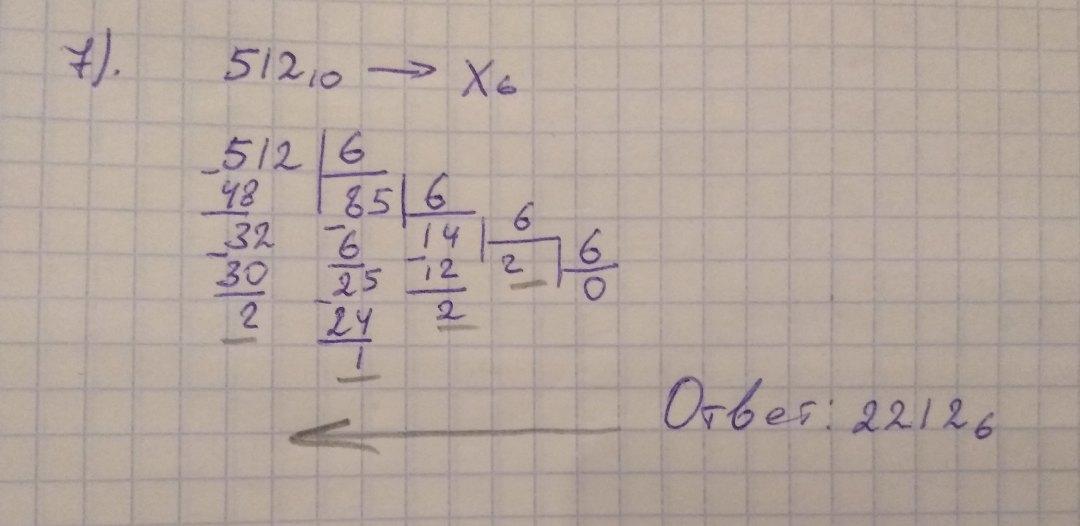 7). 512₁₀ → X₆
-512 | 6
48 85 | 6
-32 -6 -14 | 6
30 25 12 2 | 6
2 -24 2 0
1
Ответ: 2212₆